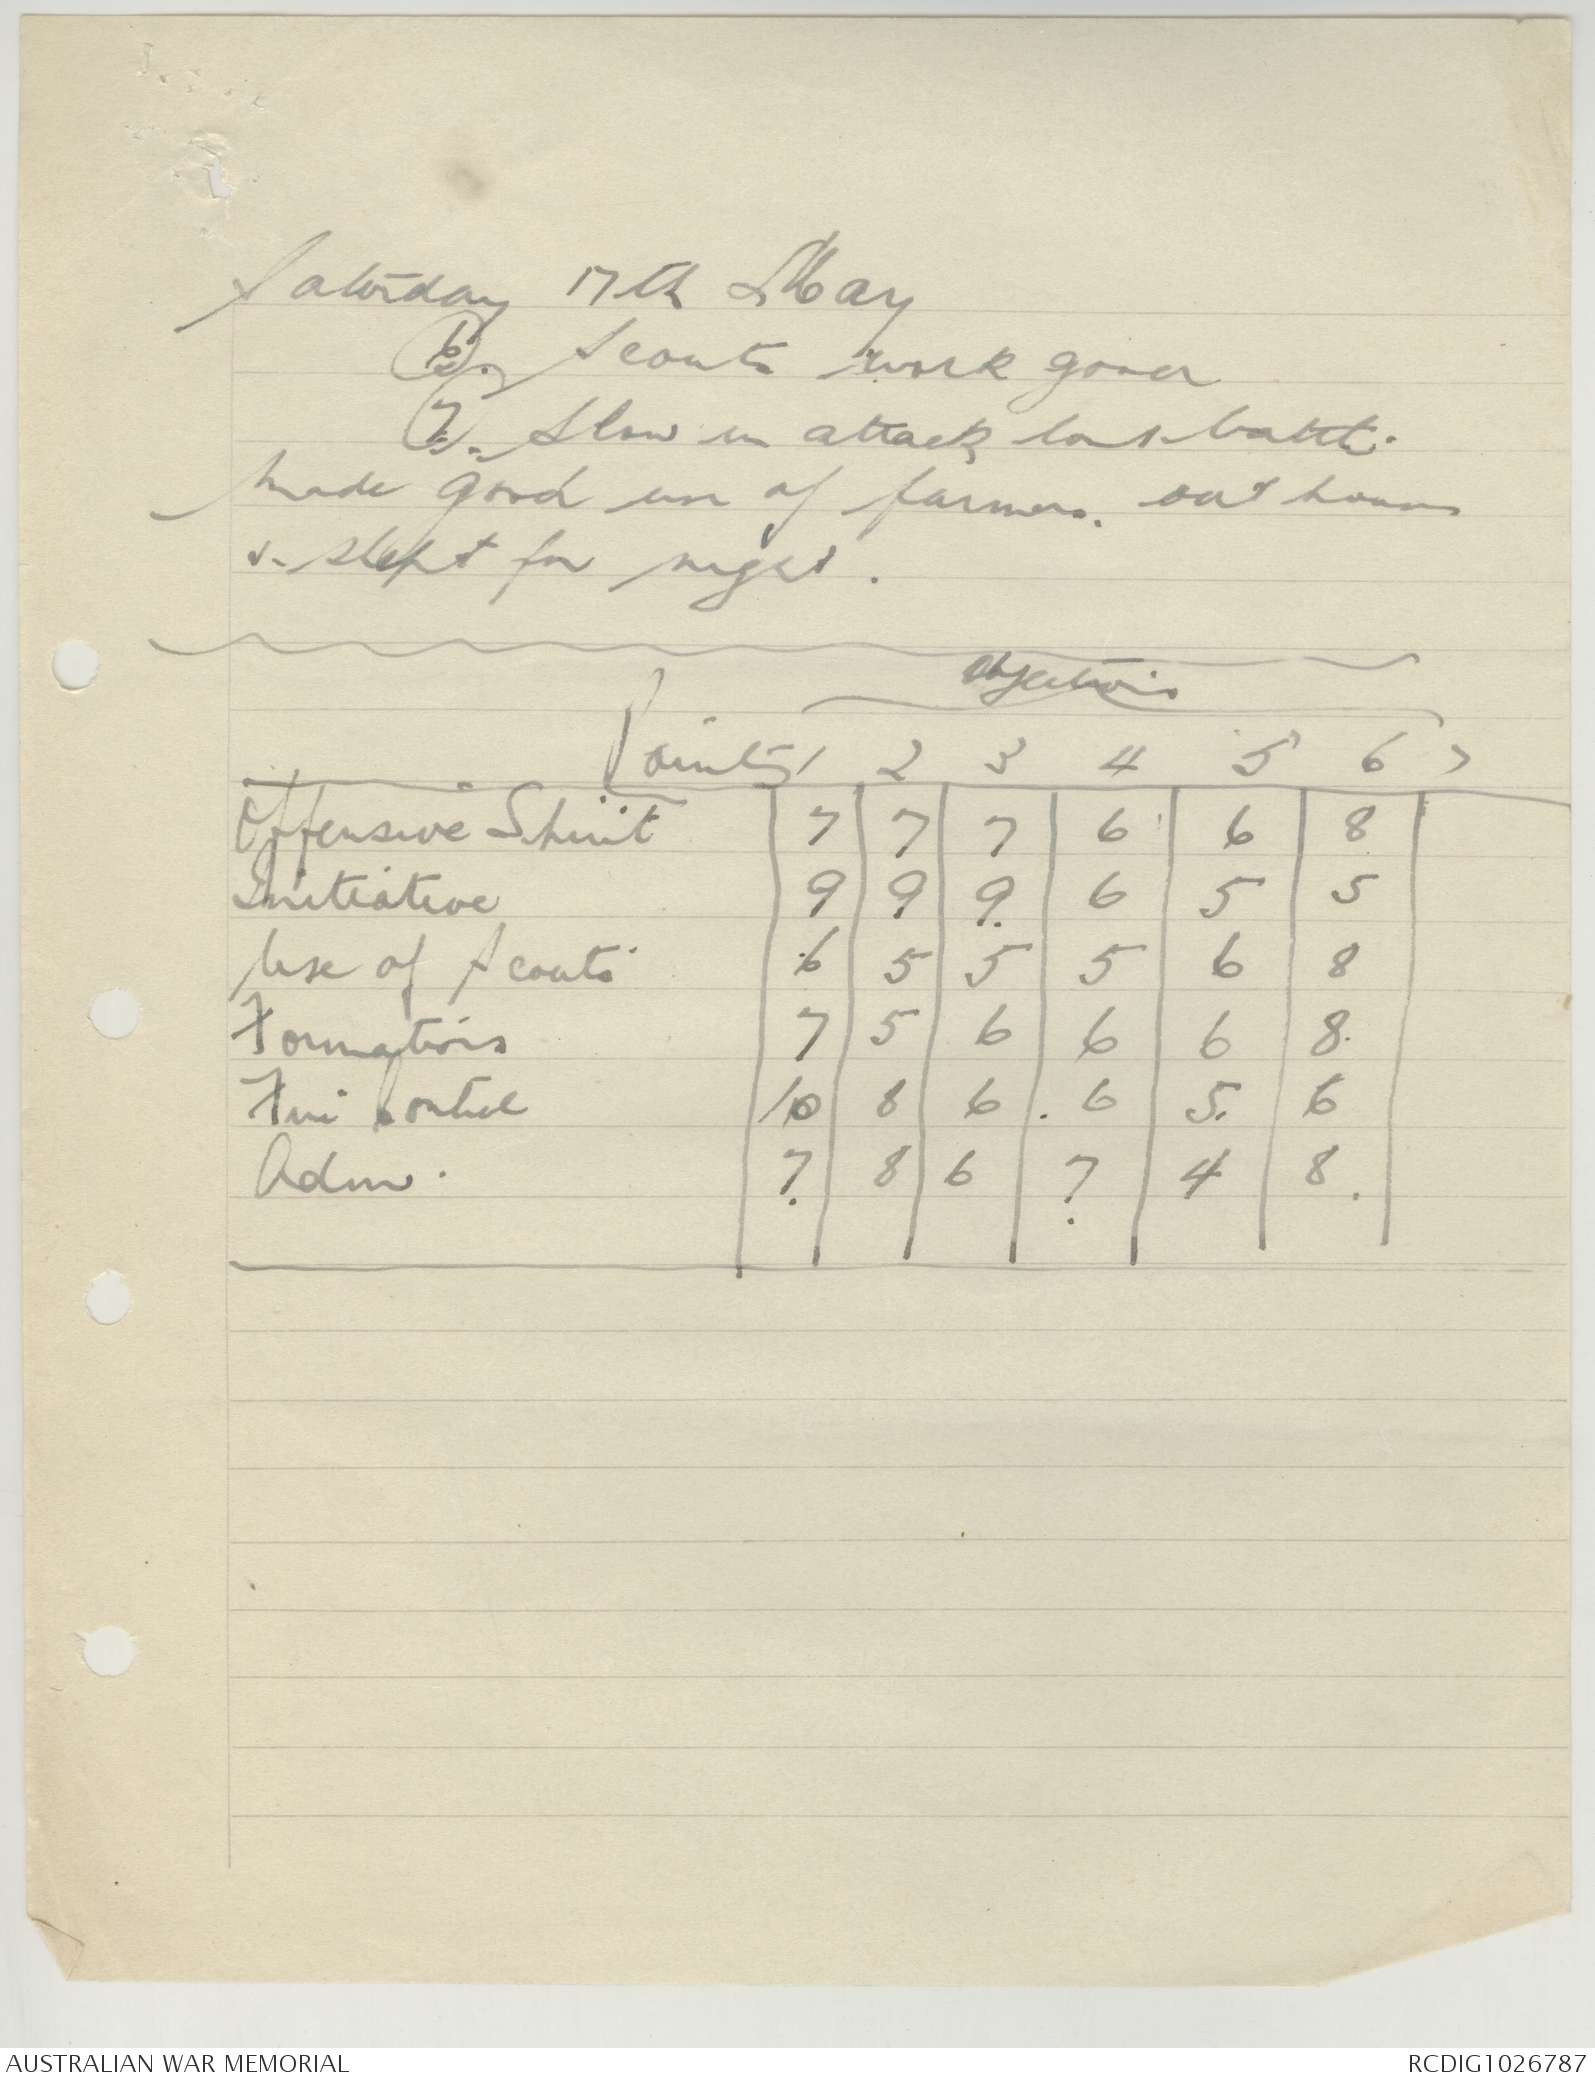 Saturday 17th May
(6). Scouts work good
(7). Slow in attack lost battle.
Made good use of farmers. out houses
& slept for night.
Objectives
Points 1 2 3 4 5 6 7
Offensive Spirit 7 7 7 6 6 8
Initiative 9 9 9 6 5 5
Use of Scouts 6 5 5 5 6 8
Formations 7 5 6 6 6 8.
Fire Control 10 8 6 . 6 5. 6
Adm. 7. 8 6 7. 4 8.
AUSTRALIAN WAR MEMORIAL RCDIG1026787